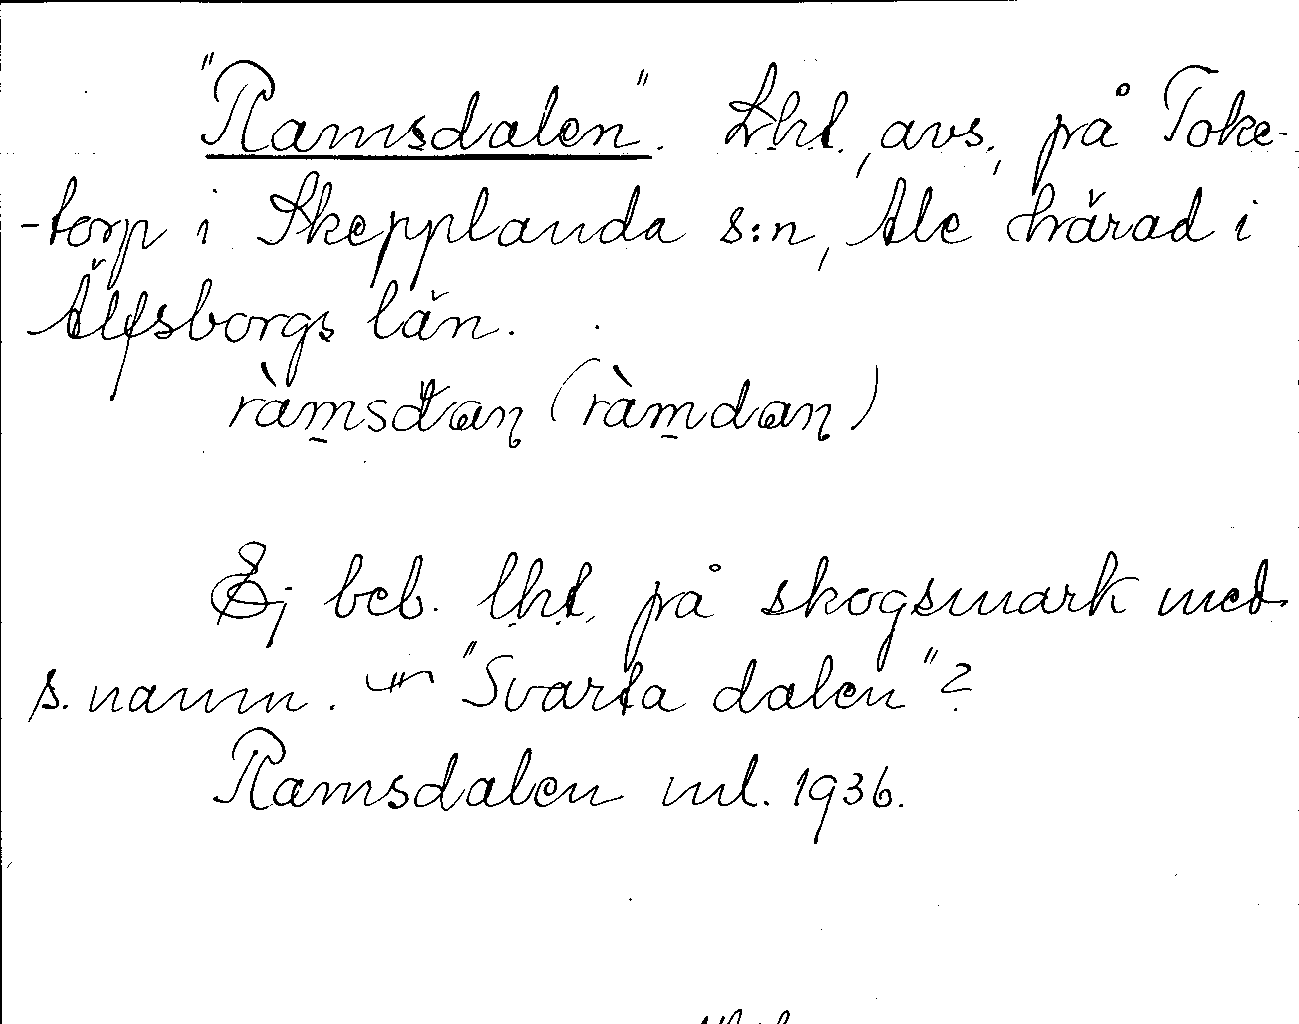 "Ramsdalen". Lht., avs., på Toke-
-torp i Skepplanda s:n, Ale härad i
Älfsborgs län.
ràmsdan (ràmdan)
Ej beb. lht. på skogsmark med
s. namn. "Svarta dalen"?
Ramsdalen ml. 1936.